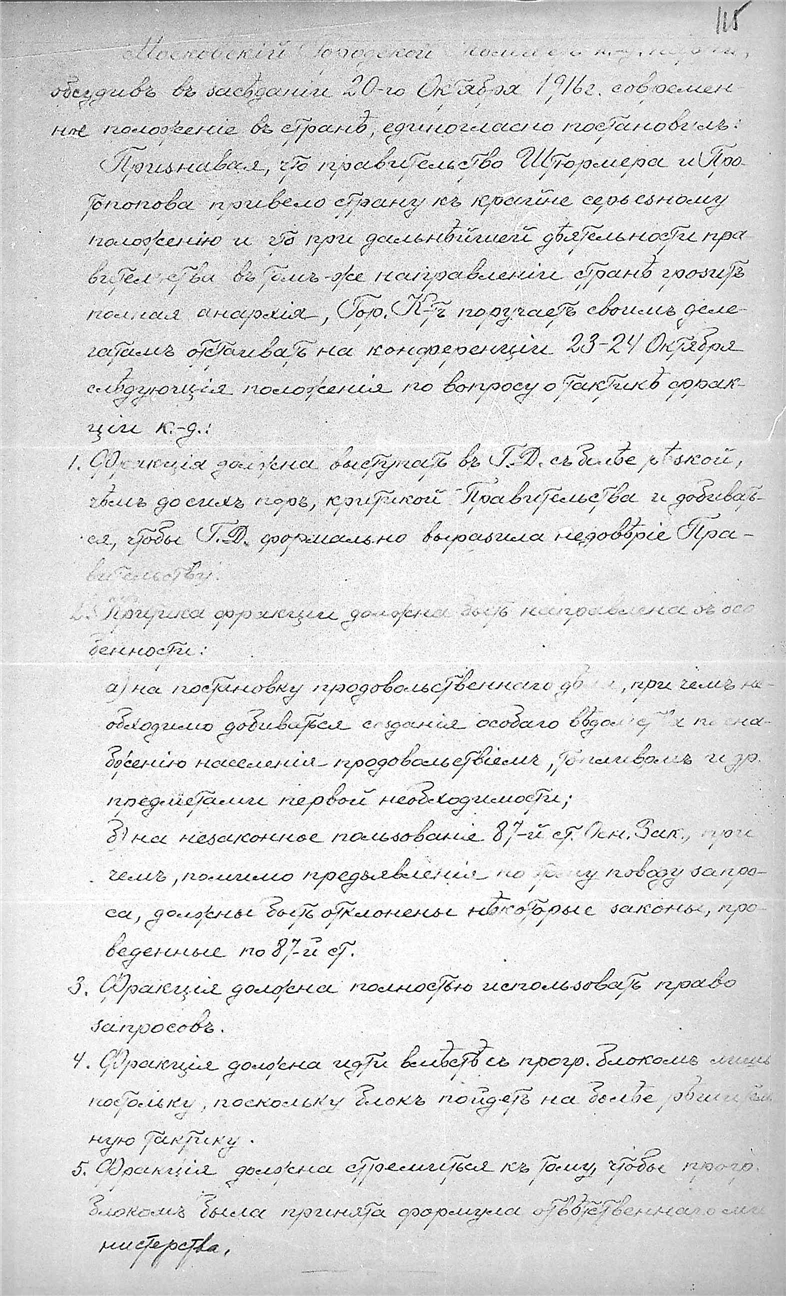 115
Московскій Городской Комитетъ к.-д. партіи,
обсудивъ въ засѣданіи 20-го Октября 1916г. современ-
ное положеніе въ странѣ, единогласно постановилъ:
Признавая, что правительство Штюрмера и Про-
топопова привело страну къ крайне серьезному
положенію и что при дальнѣйшей дѣятельности пра-
вительства въ томъ-же направленіи странѣ грозитъ
полная анархія, Гор. К-тъ поручаетъ своимъ деле-
гатамъ отстаивать на конференціи 23-24 Октября
слѣдующія положенія по вопросу о тактикѣ фрак-
ціи к.-д.:
1. Фракція должна выступать въ Г.Д. съ болѣе рѣзкой,
чѣмъ до сихъ поръ, критикой Правительства и добивать-
ся, чтобы Г.Д. формально выразила недовѣріе Пра-
вительству.
2. Критика фракціи должна быть направлена въ осо
бенности:
а) на постановку продовольственнаго дѣла, при чемъ не-
обходимо добиваться созданія особаго вѣдомства по сна-
бженію населенія продовольствіемъ, топливомъ и др.
предметами первой необходимости;
б) на незаконное пользованіе 87-й ст. Осн. Зак., при
чемъ, помимо предъявленія по этому поводу запро-
са, должны быть отклонены нѣкоторые законы, про-
веденные по 87-й ст.
3. Фракція должна полностью использовать право
запросовъ.
4. Фракція должна идти вмѣстѣ съ прогр. блокомъ лишь
постольку, поскольку блокъ пойдетъ на болѣе рѣшитель
ную тактику.
5. Фракція должна стремиться къ тому, чтобы прогр.
блокомъ была принята формула отвѣтственнаго ми
нистерства.